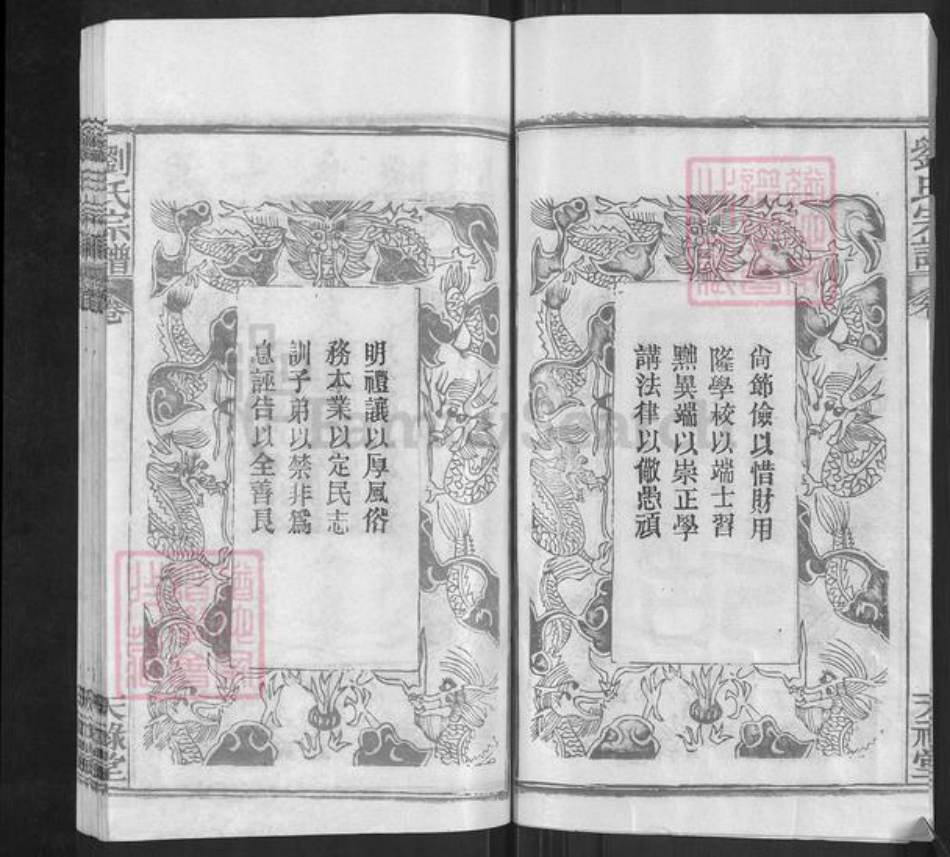 尙節儉以惜財用
隆學校以端士習
黜異端以崇正學
講法律以儆愚頑
明禮讓以厚風俗
務本業以定民志
訓子弟以禁非爲
息誣告以全善良
劉氏宗譜
卷
天祿堂
劉氏宗譜
卷
天祿堂
FamilySearch